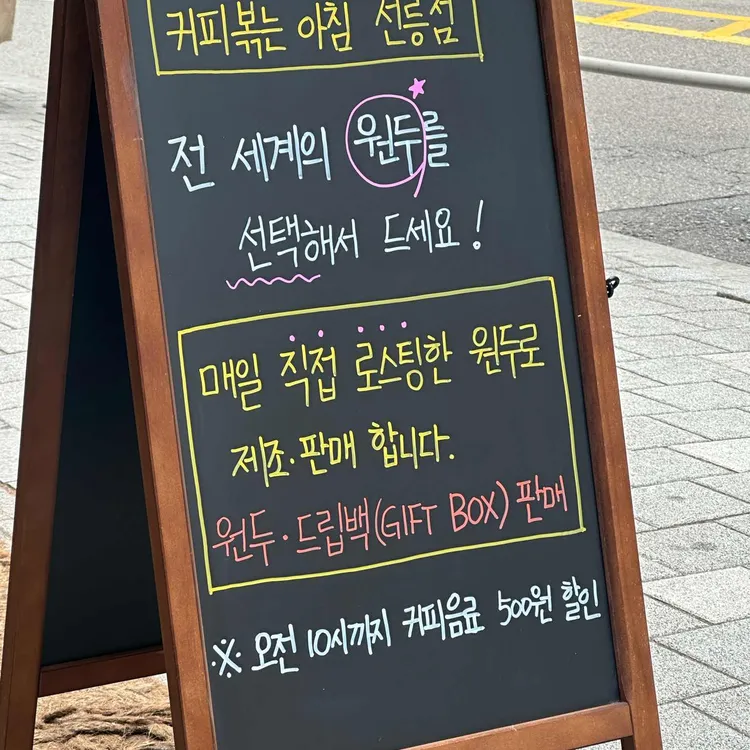 커피볶는 아침 선릉점
전 세계의 원두를
선택해서 드세요!
매일 직접 로스팅한 원두로
제조·판매 합니다.
원두·드립백(GIFT BOX) 판매
※ 오전 10시까지 커피음료 500원 할인